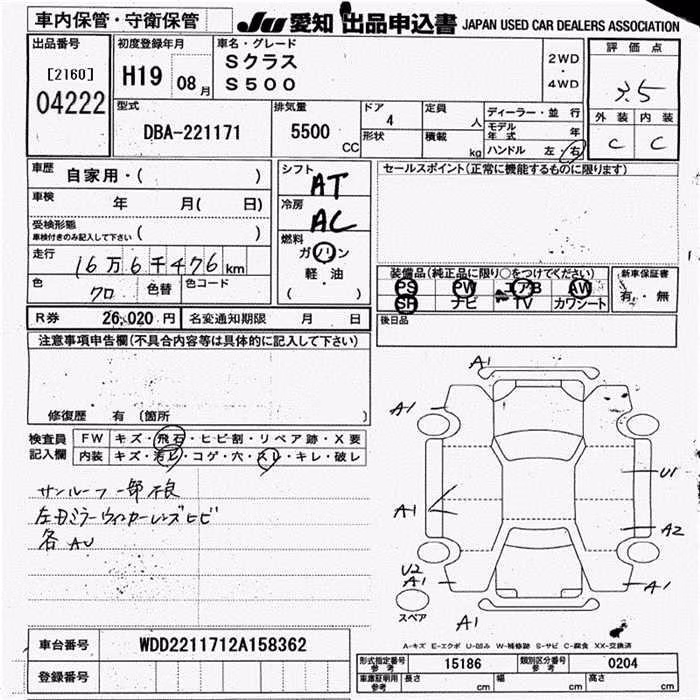 車内保管・守衛保管
JU 愛知 出品申込書 JAPAN USED CAR DEALERS ASSOCIATION
出品番号
[2160]
04222
初度登録年月
H19 08月
車名・グレード
Sクラス
S500
2WD
・
4WD
評価点
3.5
外装 内装
C C
型式
DBA-221171
排気量
5500 CC
ドア
4
形状
定員
人
積載
kg
ディーラー・並行
モデル年式 年
ハンドル 左・右
車歴 自家用・( )
車検 年 月( 日)
受検形態
車検付きのみ記入して下さい ( )
走行 16万6千476km
色 クロ 色替 色コード
シフト
AT
冷房
AC
燃料
ガソリン
軽・油
( )
セールスポイント(正常に機能するものに限ります)
装備品(純正品に限り○をつけてください)
PS PW エアB AW
SR ナビ TV カワシート
新車保証書
有・無
後日品
R券 26,020円 名変通知期限 月 日
注意事項申告欄(不具合内容等は具体的に記入して下さい)
修復歴 有 (箇所 )
検査員記入欄
FW キズ・飛石・ヒビ割・リペア跡・X要
内装 キズ・汚レ・コゲ・穴・スレ・キレ・破レ
サンルーフ一部不良
左ドアミラーウィンカーレンズヒビ
各AU
A1
A1
A1
U1
A2
U2
A1
A1
A1
スペア
A-キズ E-エクボ U-凹み W-補修跡 S-サビ C-腐食 XX-交換済
車台番号 WDD2211712A158362
登録番号
形式指定番号 参考 15186 類別区分番号 参考 0204
車庫証明用 参考 長さ cm 幅 cm 高さ cm